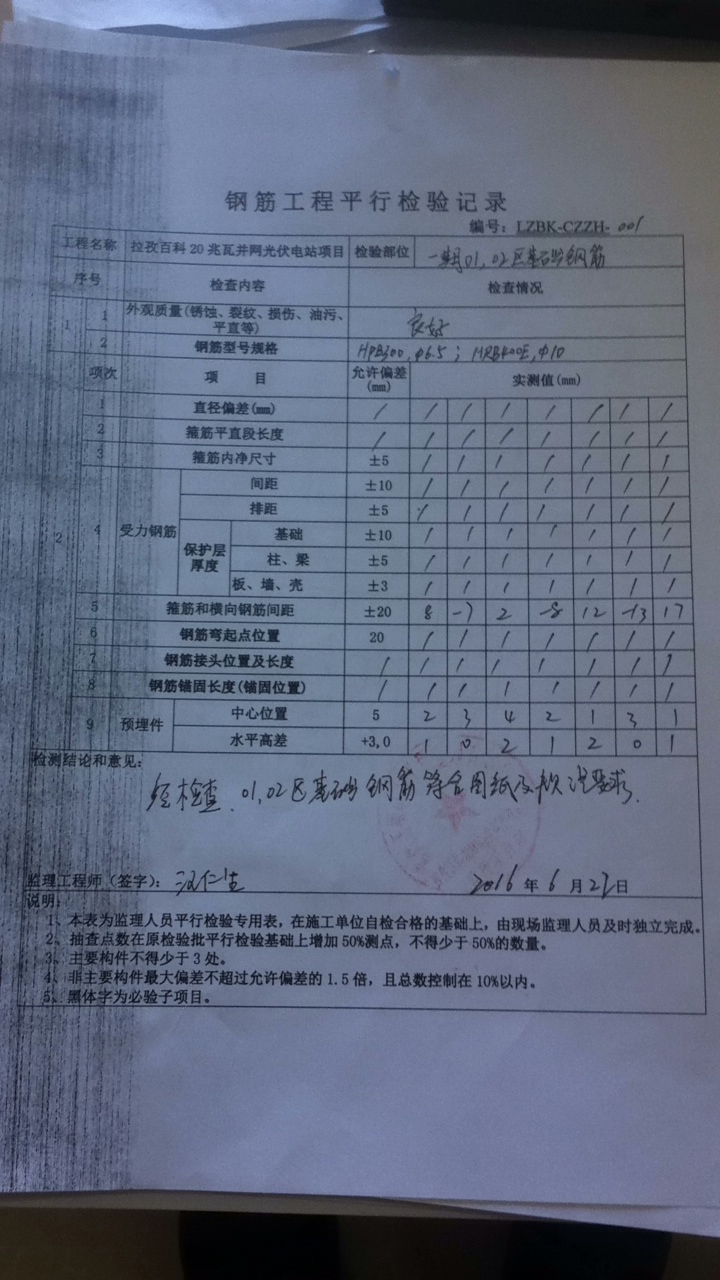 钢筋工程平行检验记录
编号：LZBK-CZZH-001
工程名称 拉孜百科20兆瓦并网光伏电站项目 检验部位 一期01,02区基础钢筋
序号 检查内容 检查情况
1 1 外观质量(锈蚀、裂纹、损伤、油污、平直等) 良好
2 钢筋型号规格 HPB300,φ6.5；HRB400E,Φ10
2 项次 项 目 允许偏差(mm) 实测值(mm)
1 直径偏差(mm) / / / / / / / /
2 箍筋平直段长度 / / / / / / / /
3 箍筋内净尺寸 ±5 / / / / / / /
4 受力钢筋 间距 ±10 / / / / / / /
排距 ±5 / / / / / / /
保护层厚度 基础 ±10 / / / / / / /
柱、梁 ±5 / / / / / / /
板、墙、壳 ±3 / / / / / / /
5 箍筋和横向钢筋间距 ±20 8 -7 2 -8 12 -13 17
6 钢筋弯起点位置 20 / / / / / / /
7 钢筋接头位置及长度 / / / / / / / /
8 钢筋锚固长度(锚固位置) / / / / / / / /
9 预埋件 中心位置 5 2 3 4 2 1 3 1
水平高差 +3,0 1 0 2 1 2 0 1
检测结论和意见：
经检查、01,02区基础钢筋符合图纸及规范要求.
监理工程师（签字）： 2016年6月 日
说明：
1、本表为监理人员平行检验专用表，在施工单位自检合格的基础上，由现场监理人员及时独立完成。
2、抽查点数在原检验批平行检验基础上增加50%测点，不得少于50%的数量。
3、主要构件不得少于3处。
4、非主要构件最大偏差不超过允许偏差的1.5倍，且总数控制在10%以内。
5、黑体字为必验子项目。